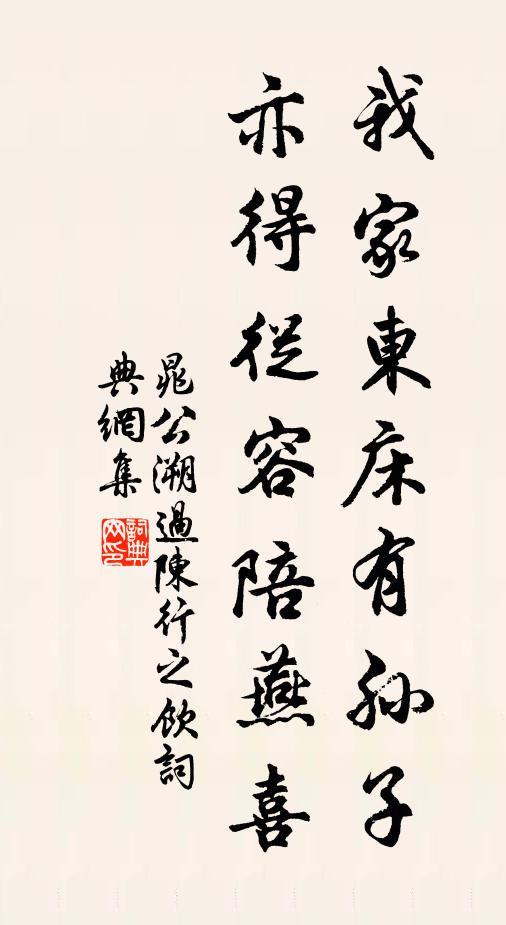 我家東床有孙子
亦得從容陪燕喜
晁公溯過陳行之飲詞
典網集
詞典
网印